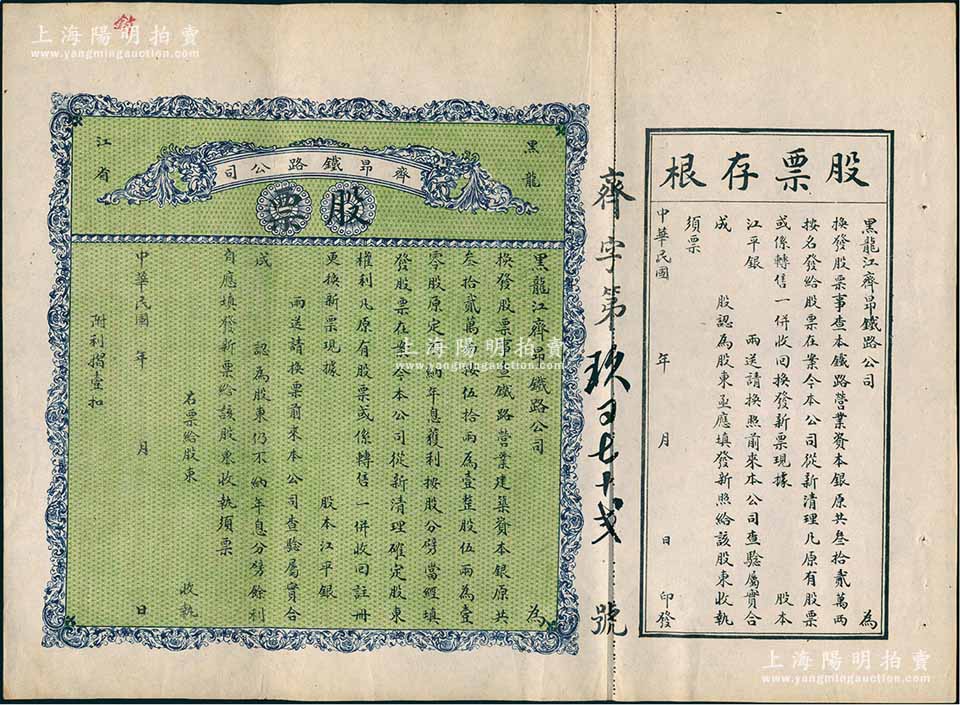 上海陽明拍賣
www.yangmingauction.com
上海陽明拍賣
www.yangmingauction.com
股票存根
黑龍江齊昂鐵路公司 為
換發股票事查本鐵路營業資本銀原共叁拾貳萬兩
按名發給股票在案今本公司從新清理凡原有股票
或係轉售一併收回換發新票現據 股本
江平銀 兩送請換照前來本公司查驗屬實合
成 股認為股東亟應填發新照給該股東收執
須票
中華民國 年 月 日 印發
齊字第玖百七十 號
黑龍江省
齊昂鐵路公司
股票
黑龍江齊昂鐵路公司 為
換發股票事 鐵路營業建築資本銀原共
叁拾貳萬 按伍拾兩為壹整股伍兩為壹
零股原定 納年息獲利按股分劈當經填
發股票在案今本公司從新清理確定股東
權利凡原有股票或係轉售一併收回註冊
更換新票現據 股本江平銀
兩送請換票前來本公司查驗屬實合
成 認為股東仍不納年息分劈餘利
自應填發新票給該股東收執須票
右票給股東 收執
中華民國 年 月 日
附利摺壹扣
上海陽明拍賣
www.yangmingauction.com
上海陽明拍賣
www.yangmingauction.com